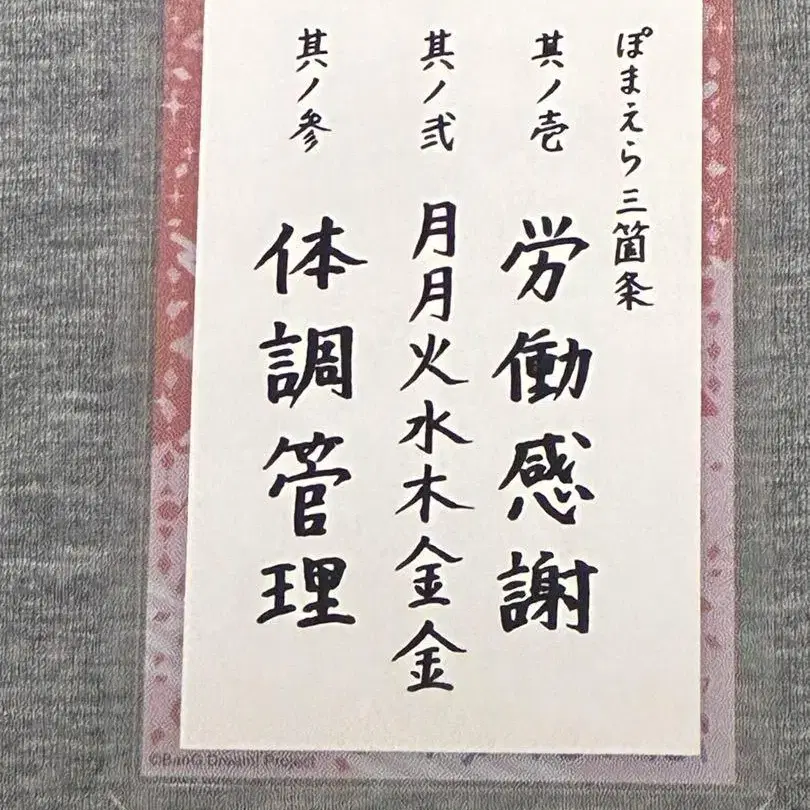 ぽまえら三箇条
其ノ壱 労働感謝
其ノ弐 月月火水木金金
其ノ参 体調管理
©BanG Dream! Project